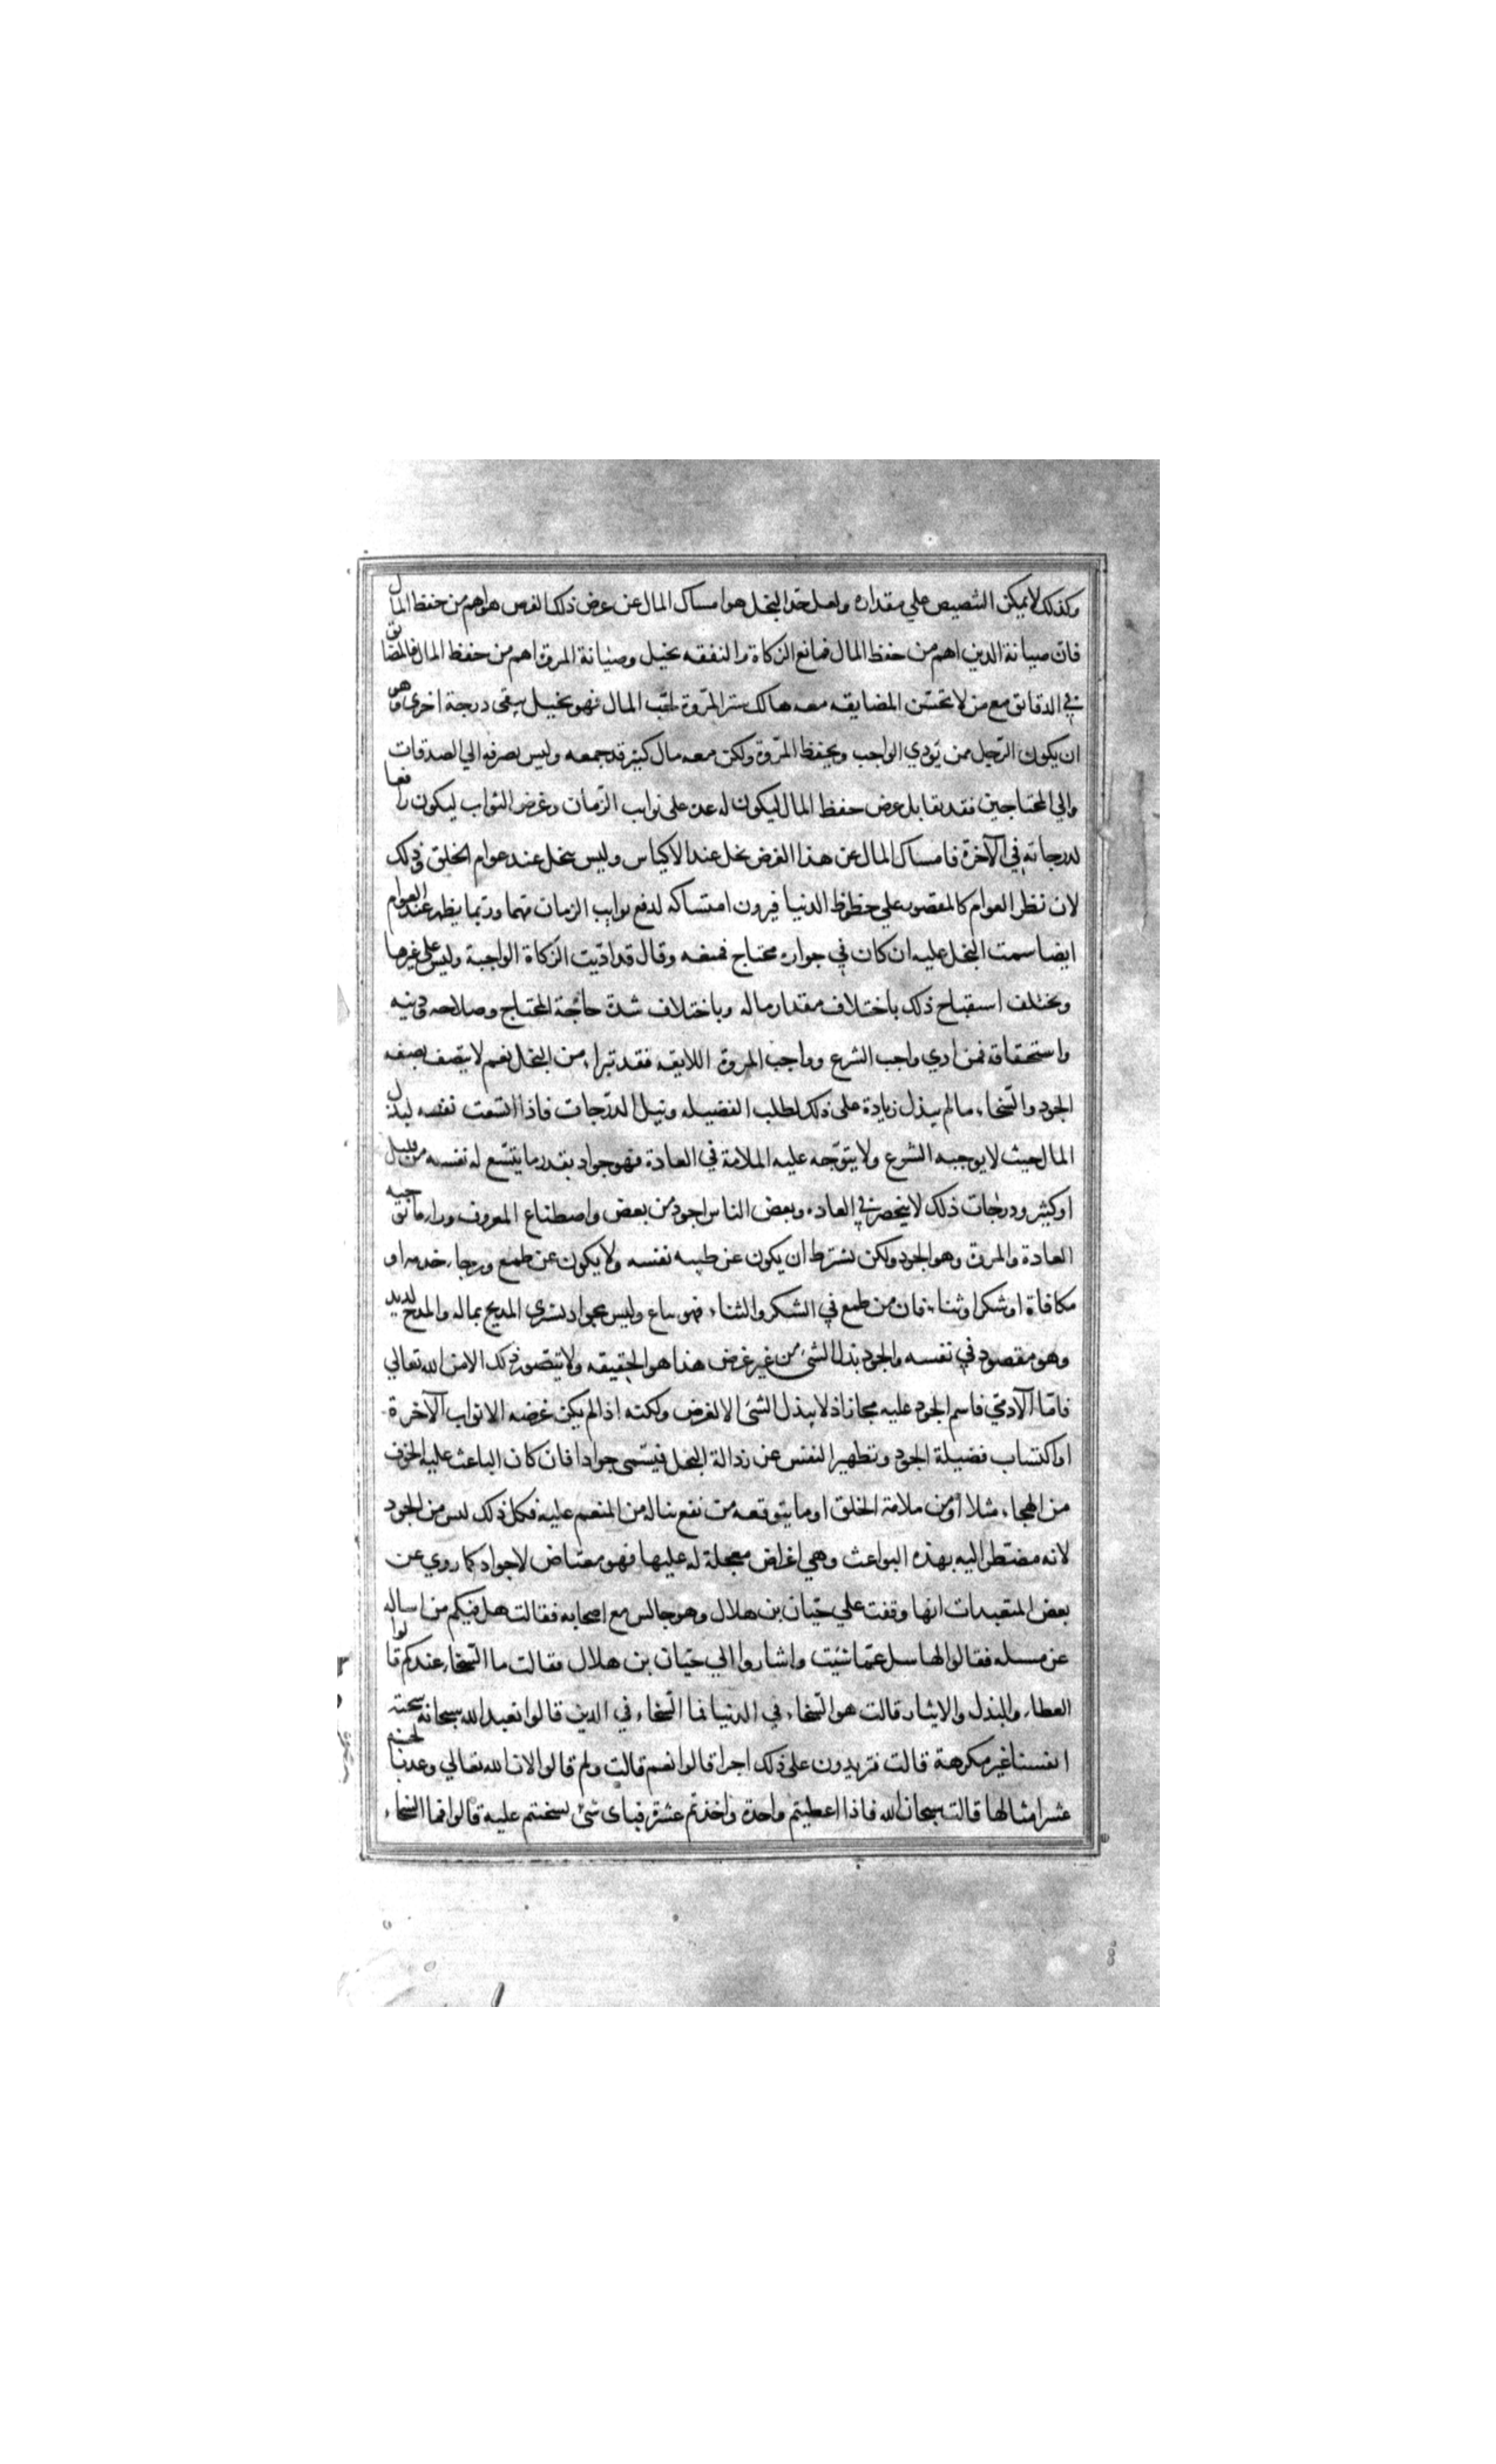 وكذلك لا يمكن التنصيص علي مقداره ولعل حد البخل هو امساك المال عن عرض ذلك الغرض هو اهم من حفظ المال
فان صيانة الدين اهم من حفظ المال فمانع الزكاة والنفقه بخيل وصيانة المروة اهم من حفظ المال فالمضايق
في الدقائق مع من لا تحسن المضايقه معه هالك ستر المروة لحب المال فهو بخيل يبقى درجة اخرى وهو
ان يكون الرجل ممن يودي الواجب ويحفظ المروة ولكن معه مال كثير قد جمعه وليس يصرفه الي الصدقات
والي المحتاجين فقد يقابل عرض حفظ المال ليكون له عدة على نوايب الزمان وغرض الثواب ليكون رافعا
لدرجاته في الآخرة فامساك المال عن هذا الغرض بخل عند الاكياس وليس بخل عند عوام الخلق وذلك
لان نظر العوام كالمقصور علي حظوظ الدنيا فيرون امساكه لدفع نوايب الزمان مهما وربما يظهر عند العوام
ايضا سمت البخل عليه ان كان في جواره محتاج فمنعه وقال قد اديت الزكاة الواجبة وليس علي غيرها
ويختلف استقباح ذلك باختلاف مقدار ماله وباختلاف شدة حاجة المحتاج وصلاحه ودينه
واستحقاقه فمن ادي واجب الشرع وواجب المروة اللايقه فقد تبرا من البخل نعم لا يتصف بصفه
الجود والسخاء ما لم يبذل زيادة على ذلك لطلب الفضيله ونيل الدرجات فاذا اتسعت نفسه لبذل
المال حيث لا يوجبه الشرع ولا يتوجه عليه الملامة في العادة فهو جواد بقدر ما يتسع له نفسه من قليل
او كثير ودرجات ذلك لا ينحصر في العاده وبعض الناس اجود من بعض واصطناع المعروف وراء ما توجبه
العادة والمروة وهو الجود ولكن بشرط ان يكون عن طيبه نفسه ولا يكون عن طمع ورجاء خدمه او
مكافاة او شكر او ثناء فان من طمع في الشكر والثناء فهو بياع وليس بجواد يشترى المديح بماله والمدح لذيذ
وهو مقصود في نفسه والجود بذل الشئ من غير غرض هذا هو الحقيقه ولا يتصور ذلك الا من الله تعالي
فاما الآدمي فاسم الجود عليه مجاز اذ لا يبذل الشئ الا لغرض ولكنه اذا لم يكن غرضه الا ثواب الآخرة
او اكتساب فضيلة الجود وتطهير النفس عن رذالة البخل فيسمى جوادا فان كان الباعث عليه الخوف
من الهجاء مثلا أو من ملامة الخلق او ما يتوقعه من نفع يناله من المنعم عليه فكل ذلك ليس من الجود
لانه مضطر اليه بهذه البواعث وهي اغراض معجلة له عليها فهو معتاض لا جواد كما روي عن
بعض المتعبدات انها وقفت علي حيان بن هلال وهو جالس مع اصحابه فقالت هل فيكم من اساله
عن مسله فقالوا لها سل عما شئت واشاروا الي حيان بن هلال فقالت ما السخاء عندكم قالوا
العطاء والبذل والايثار قالت هو السخاء في الدنيا فما السخاء في الدين قالوا نعبد الله سبحانه سخيه
انفسنا غير مكرهة قالت فتريدون على ذلك اجرا قالوا نعم قالت ولم قالوا لان الله تعالي وعدنا بالحسنه
عشر امثالها قالت سبحان الله فاذا اعطيتم واحدة واخذتم عشرة فباى شئ سخيتم عليه قالوا فما السخاء